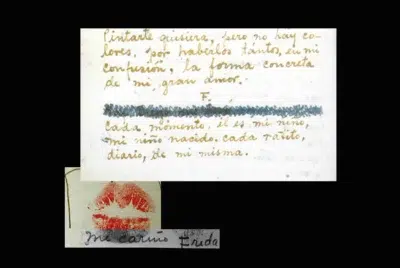 Pintarte quisiera, pero no hay co-
lores, por haberlos tantos, en mi
confusión, la forma concreta
de mi gran amor.
F.
cada momento, él es mi niño,
mi niño nacido, cada ratito,
diario, de mi misma.
mi cariño Frida